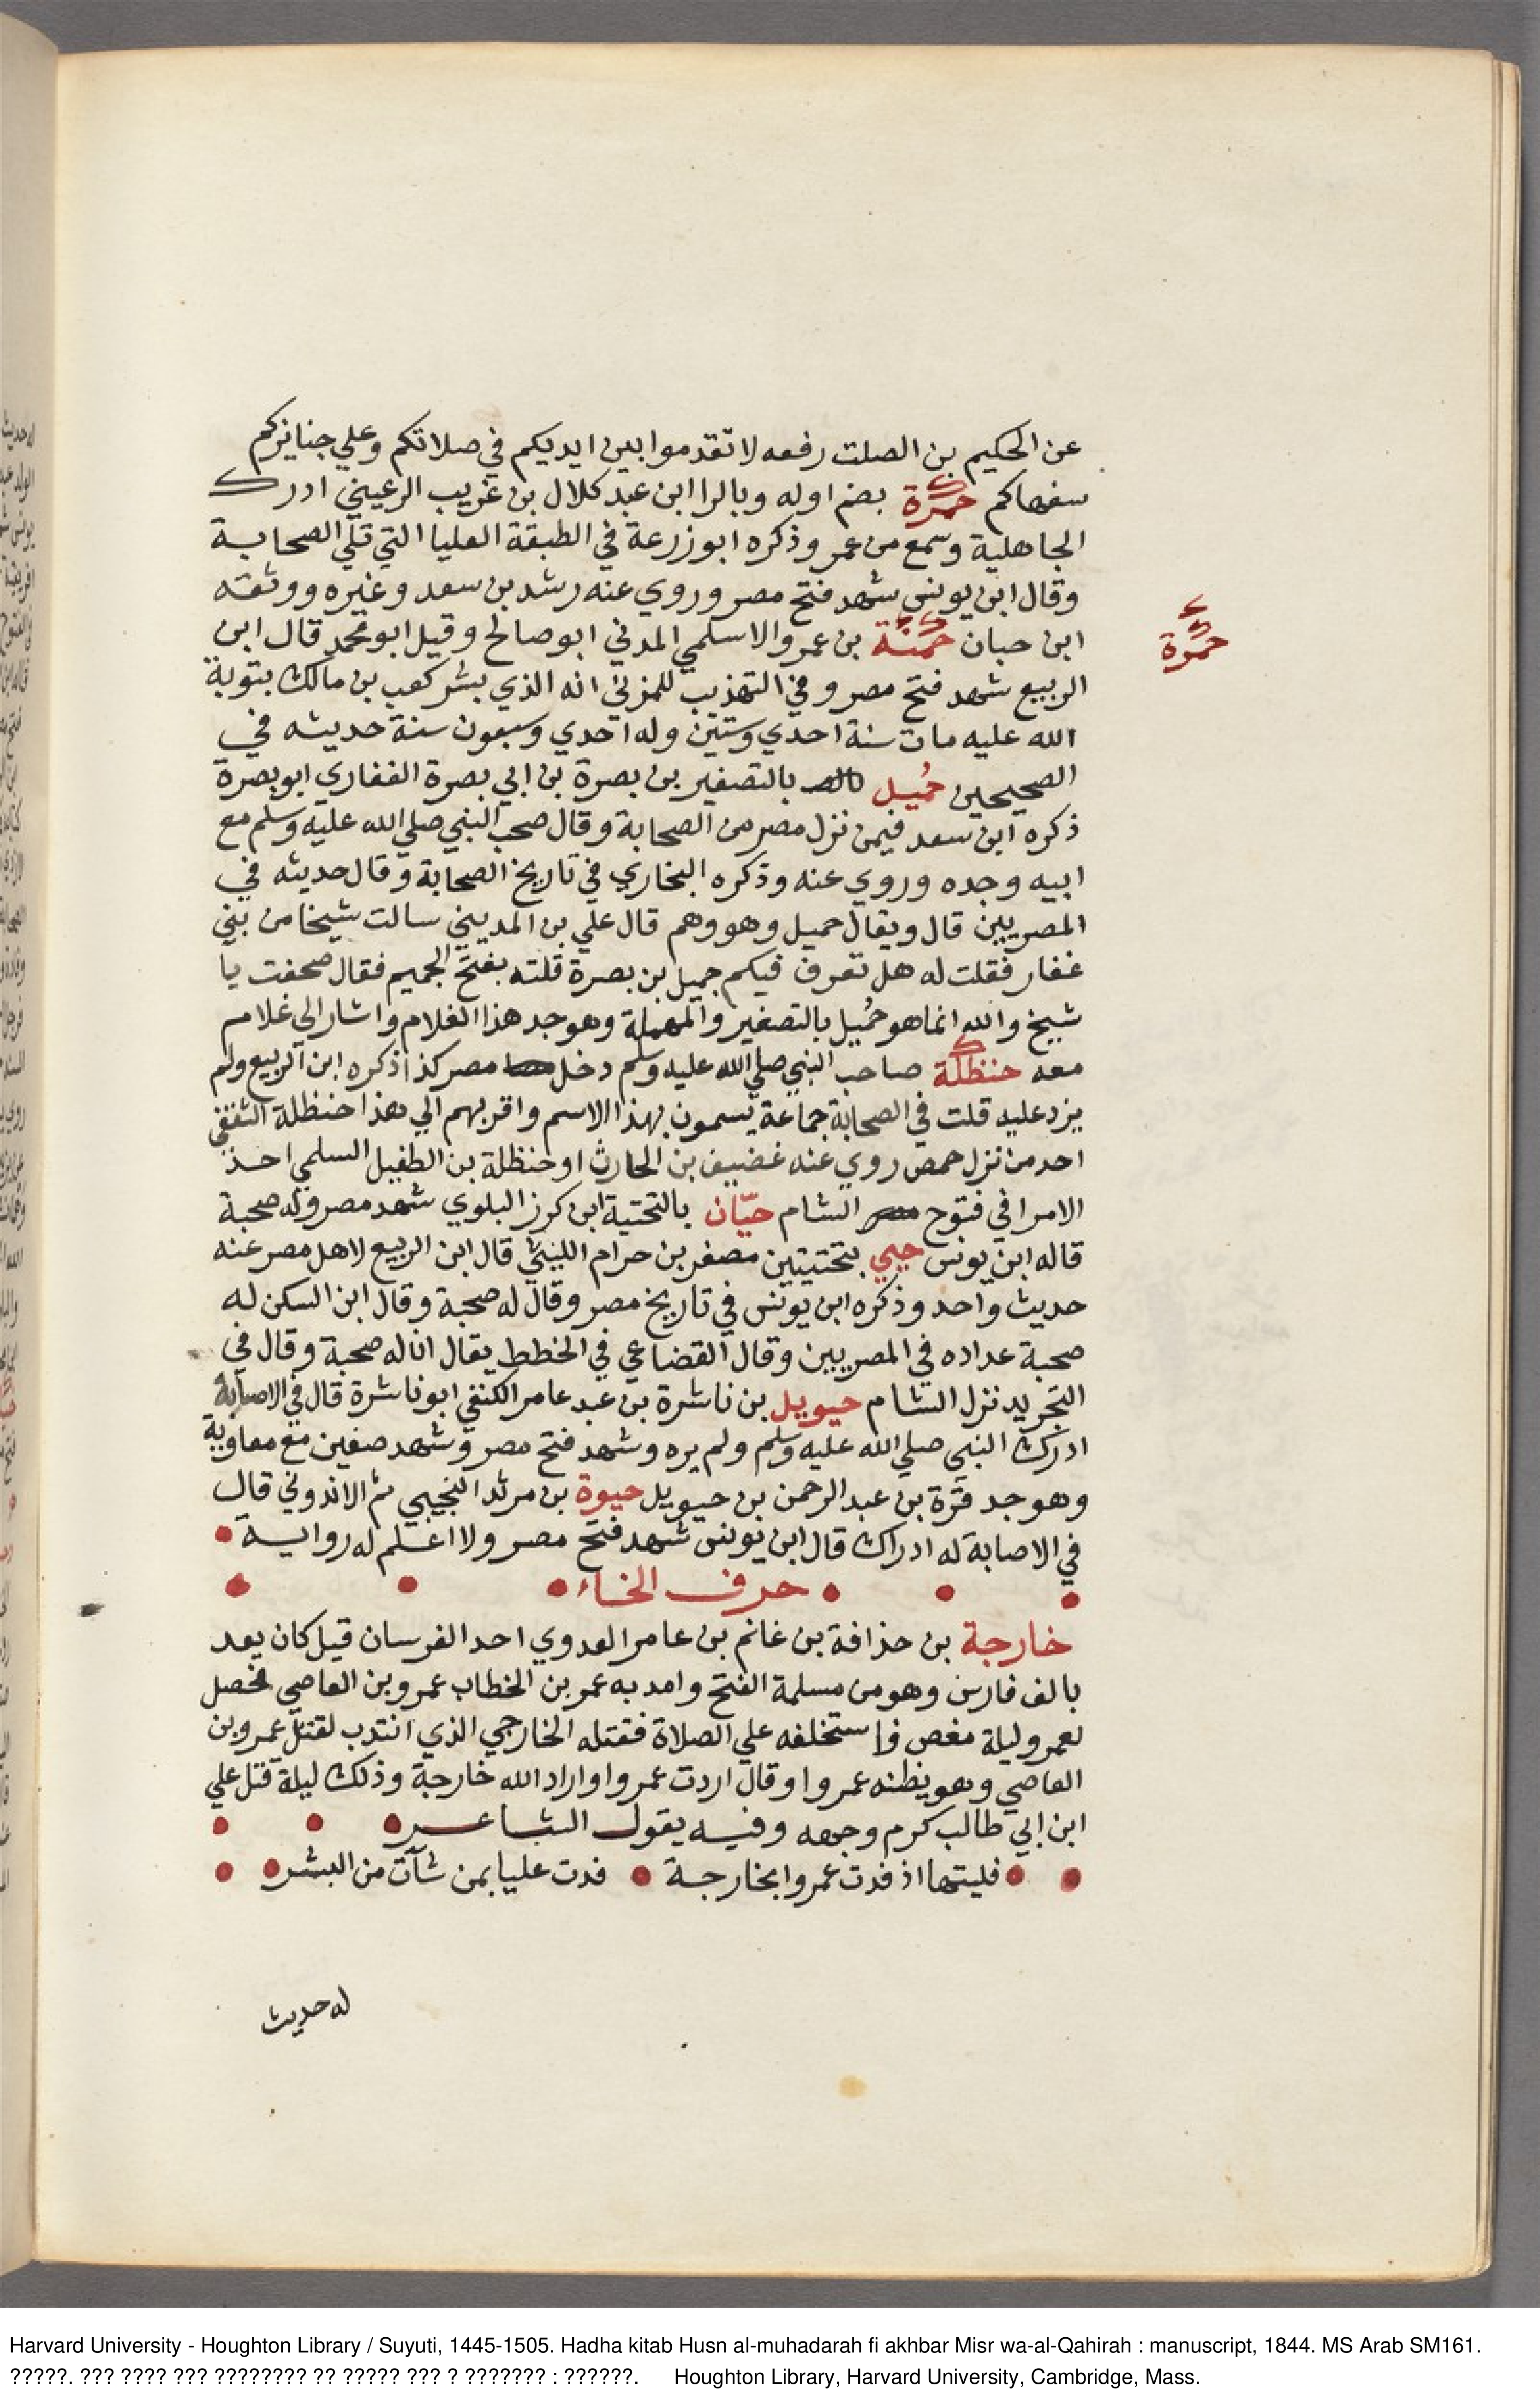 عن الحكيم بن الصلت رفعه لا تقدموا بين ايديكم في صلاتكم وعلي جنايزكم
سفهاكم حمرة بضم اوله وبالرا ابن عبد كلال بن غريب الرعيني ادرك
الجاهلية وسمع من عمر وذكره ابو زرعة في الطبقة العليا التي تلي الصحابة
وقال ابن يونس شهد فتح مصر وروي عنه رشد بن سعد وغيره ووثقه
ابن حبان حمنة بن عمرو الاسلمي المدني ابو صالح وقيل ابو محمد قال ابن
حمرة
الربيع شهد فتح مصر وفي التهذيب للمزني انه الذي بشر كعب بن مالك بتوبة
الله عليه مات سنة احدي وستين وله احدي وسبعون سنة حديثه في
الصحيحين حُميل بالتصغير بن بصرة بن ابي بصرة الغفاري ابو بصرة
ذكره ابن سعد فيمن نزل مصر من الصحابة وقال صحب النبي صلي الله عليه وسلم مع
ابيه وجده وروي عنه وذكره البخاري في تاريخ الصحابة وقال حديثه في
المصريين قال ويقال حميل وهو وهم قال علي بن المديني سالت شيخا من بني
غفار فقلت له هل تعرف فيكم جميل بن بصرة قلته بفتح الجميم فقال صحفت يا
شيخ والله انما هو حُميل بالتصغير والمهملة وهو جد هذا الغلام واشار الي غلام
معه حنظلة صاحب النبي صلي الله عليه وسلم دخل مصر كذا ذكره ابن الربيع ولم
يزد عليه قلت في الصحابة جماعة يسمون بهذا الاسم واقربهم الي هذا حنظلة الثقفي
احد من نزل حمص روي عنه غضيف بن الحارث او حنظلة بن الطفيل السلمي احد
الامرا في فتوح مصر الشام حيّان بالتحتية ابن كرز البلوي شهد مصر وله صحبة
قاله ابن يونس حيي بتحتيتين مصغر بن حرام الليثي قال ابن الربيع لاهل مصر عنه
حديث واحد وذكره ابن يونس في تاريخ مصر وقال له صحبة وقال ابن السكن له
صحبة عداده في المصريين وقال القضاعي في الخطط يقال ان له صحبة وقال في
التجريد نزل الشام حيويل بن ناشرة بن عبد عامر الكنفي ابو ناشرة قال في الاصابة
ادرك النبي صلي الله عليه وسلم ولم يره وشهد فتح مصر وشهد صفين مع معاوية
وهو جد قرة بن عبد الرحمن بن حيويل حيوة بن مرثد التجيبي ثم الاندوني قال
في الاصابة له ادراك قال ابن يونس شهد فتح مصر ولا اعلم له رواية
حرف الخاء
خارجة بن حذافة بن غانم بن عامر العدوي احد الفرسان قيل كان يعد
بالف فارس وهو من مسلمة الفتح وامد به عمر بن الخطاب عمرو بن العاصي فحصل
لعمرو ليلة مغص فاستخلفه علي الصلاة فقتله الخارجي الذي انتدب لقتل عمرو بن
العاصي وهو يظنه عمروا وقال اردت عمروا واراد الله خارجة وذلك ليلة قتل علي
ابن ابي طالب كرم وجهه وفيه يقول الشاعر
فليتها اذ فدت عمروا بخارجة فدت عليا بمن شآت من البشر
له حديث
Harvard University - Houghton Library / Suyuti, 1445-1505. Hadha kitab Husn al-muhadarah fi akhbar Misr wa-al-Qahirah : manuscript, 1844. MS Arab SM161.
?????. ??? ???? ??? ???????? ?? ????? ??? ? ??????? : ??????. Houghton Library, Harvard University, Cambridge, Mass.